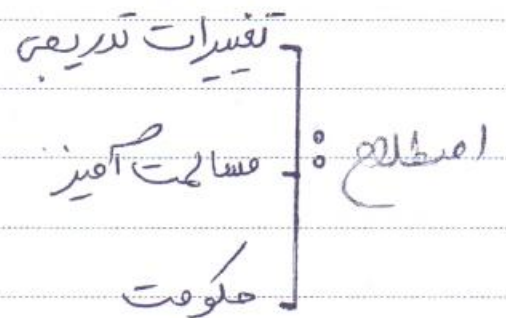 اصطلاح :
تغییرات تدریجی
مسالمت آمیز
حکومت